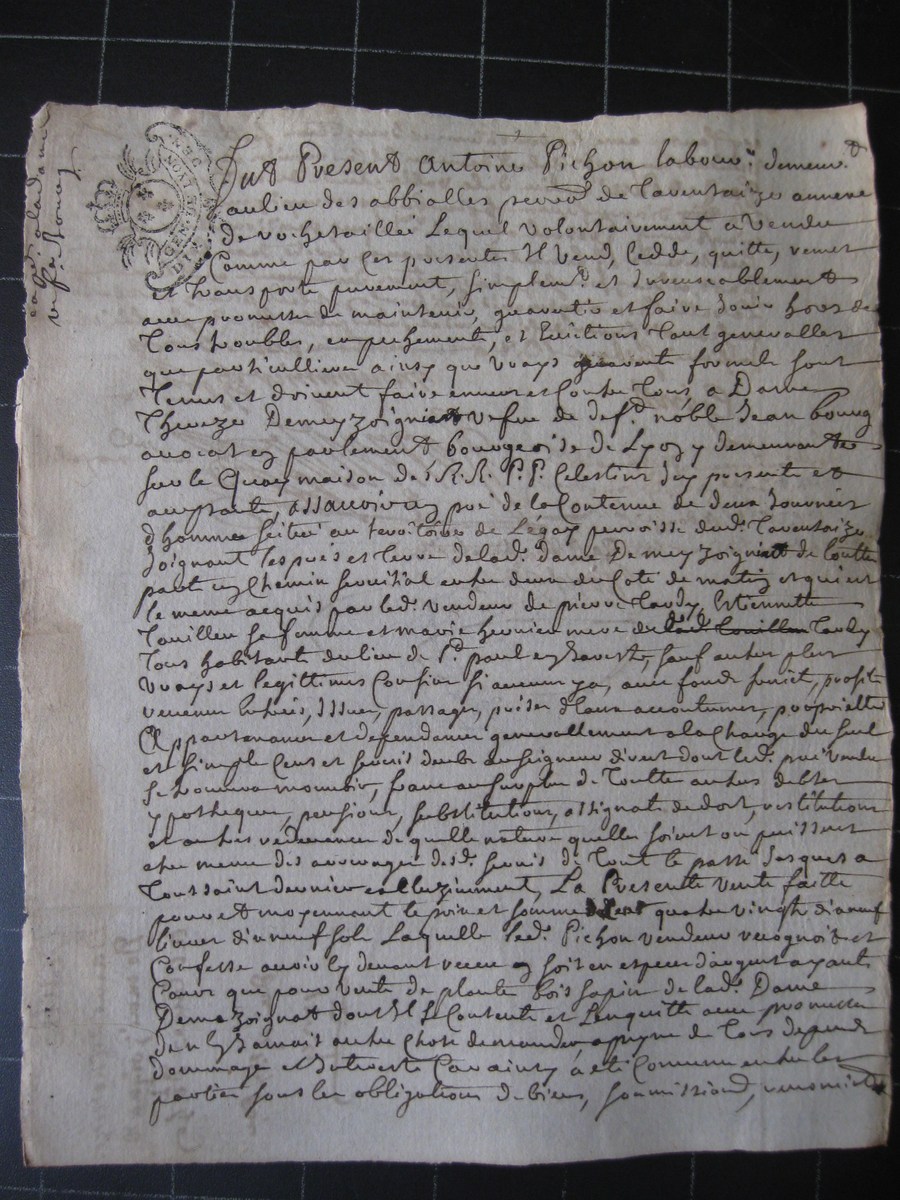 GENERALITE DE
Fut Present Antoine Pichon labour.r demeur.t
au lieu des abbialles parro.e de Tarentaize annexe
de rochetaillée Lequel volontairement a Vendu
Comme par Ces presentes Il Vend, Cedde, quitte, remet
et transporte purement, simplem.t et Irrevocablement
avec promesse de maintenir, garentir et faire Jouir hors de
Tous troubles, empechements, et Evictions Tant generalles
que particullieres ainsy que vrays garents formels sont
Tenus et doivent faire envers et Contre Tous, a Dame
Thereze Demeyzoigniat vefue de deff.t noble Jean bourg
avocat en parlement bourgeoise de Lyon y demeurante
sur le Quay maison des R.R. P.P. Celestins Icy presente et
acceptante, assavoir un pré de la Contenue de deux Journées
d'homme scitué au terroitoire de parroisse dud. Tarentaize
Joignant les prés et terre de lad. Dame Demeyzoigniat de toutte
part un Chemin servitial entre deux du Coté de matin et qui est
le meme acquis par led. vendeur de pierre Tardy, Estiennette
Touilleu sa femme et marie mere dud. Tardy
Tous habitants du lieu de S.t paul en Jarests, sauf autres plus
vrays et legittimes Confins si aucuns y a, avec fonds, proffits
revenus Entrées, Issues, passages, prises d'Eaux accoutumés, proprietés
Appartenances et dependances generallement a la Charge du seul
et simple Cens et servis deubs au seigneur direct dont led. pré vendu
se trouvera mouvoir, franc au surplus de Touttes autres debtes
ypotheques, pensions, substitutions, assignats de dot, restitutions
et autres redevances de quelle nature quelles soient ou puissent
etre meme des arrerages desd. servis de Tout le passé Jusques a
Toussaint dernier, La Presente vente faitte
pour et moyennant le prix et somme de quatre vingt dixneuf
livres dixneuf sols Laquelle led. Pichon vendeur recognoit et
Confesse avoir cy devant receue soit en especes d'argent ayant
Cours que pour vente de plante bois sapin de lad. Dame
Demazoignat dont Il se Contente et L'enquitte avec promesse
de n'en Jamais autre Chose demander a peyne de Tous depends
dommages et Interests Car ainsy a eté Convenu entre les
parties sous les obligations de biens, soumissions, renonciat.